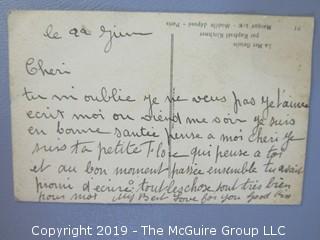 le 22 Juin
Cheri
tu m'oublie je ne veus pas je t'aime
ecris moi ou viend me soir je suis
en bonne santie pense a moi Cheri je
suis ta petite Flore qui pense a toi
et au bon moment passée ensemble tu avait
promi d'ecrire tout les chose sont très bien
pour moi My Best Love for you Good
La Mer fleurie
par Raphaël Kirchner
Marque L-E - Modèle déposé - Paris
Copyright 2019 - The McGuire Group, LLC